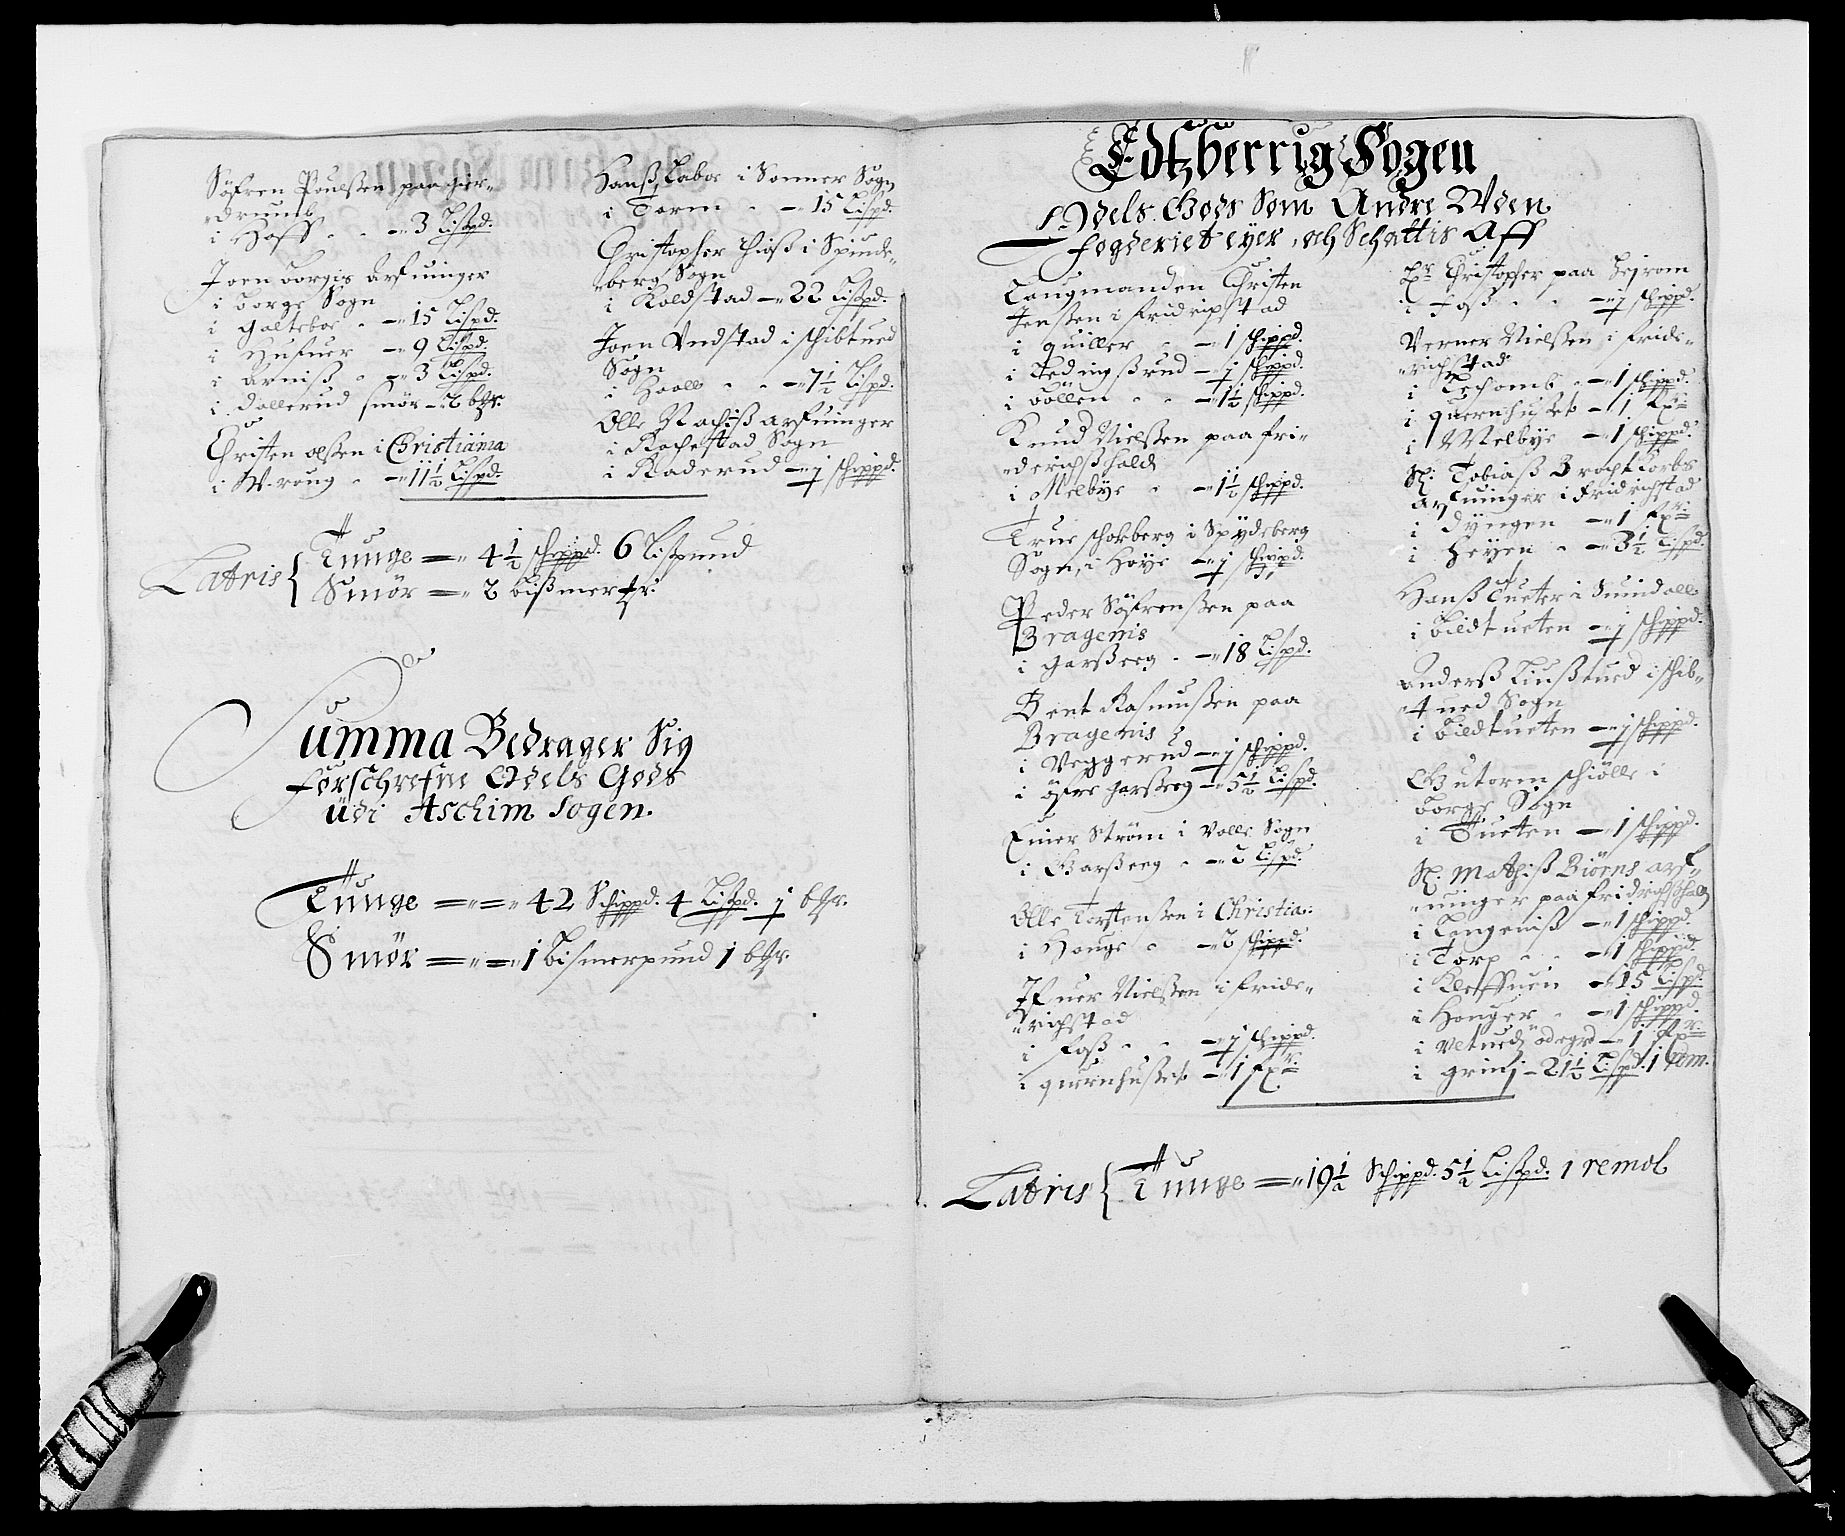 Søfren Poulssen paa Gier„
„drumb
i Hoff - - „ 3 Lispd.
Joen Borgis Arfuinger
i Borge Sogn
i Galteboe - „ 15 Lispd.
i Hufuer - „ 9 Lispd.
i Arniß - „ 3 Lispd.
i Dallerud smør - 2 bpr.
Christen olssen i Christiania
i Wroug - „ 11½ Lispd.
Hanß Laboe i Sonner Sogn
i Torm - „ 15 Lispd.
Christopher Huß i Spinde„
„berg Sogn
i Koldstad „ 22 Lispd.
Joen Undstad i Schibtued
Sogn
i Haalle - „ 7½ Lispd.
Olle Rachiß arfuinger
i Rachestad Sogn
i Raderud „ j Schippd.
Latris { Tunge = „ 4½ Schippd. 6 Lispund
Smør = „ 2 Bißmerpr.
Summa Bedrager Sig
forschrefne Odels Gods
udi Aschim Sogen.
Tunge = „ = „ 42 Schippd. 4 Lispd. j bpr.
Smør = „ = „ 1 Bismerpund 1 bpr.
Edtzberrig Sogen
Odels Gods Som Andre Uden
fogderiet eyer, och Schattis Aff
Laugmanden Christen
Jenssen i Fridrichstad
i quiller - „ 1 Schippd.
i Tedingßrud - j Schippd.
i Böllen - „ 1½ Schippd.
Knud Nielssen paa fri„
„derichßhald
i Melbye - „ 1½ Schippd.
True Schokberg i Spydeberg
Sogn, i Høye „ j Schippd.
Peder Søfrenssen paa
Bragenis
i Garßeeg - „ 18 Lispd.
Bent Rasmussen paa
Bragenis
i Veggerud „ j Schippd.
i øfre Garßeeg „ 5½ Lispd.
Einer Strøm i Valle Sogn
i Garßeeg - „ 2 Lispd.
Olle Torstenssen i Christia:
i Houge - „ 2 Schippd.
Ifuer Nielssen i Fride„
„richstad
i Foß - - „ j Schippd.
i quernhusset „ 1 Rxr
Hr Christopher paa Bejrom
i Foß - - „ j Schippd.
Verner Nielssen i Fride„
„richstad
i Lechomb - „ 1 Schippd.
i quernhusset - 1 Rxr
i Melbye - „ 1 Schippd.
Sl: Tobiaß Brocht Torbs
arfuinger i Fridrichstad
i Dyngen „ 1 Rxr
i Heyen - „ 3½ Lispd.
Hanß Tueter i Suindall
i Bildtueten „ j Schippd.
Anderß Liußtued i Schib„
„tued Sogn
i Bildtueten „ j Schippd.
Gutorm Schiølle i
Borge Sogn
i Tueten - „ 1 Schippd.
Sl: Mathiß Biørns arf„
„uinger paa fridrichßhald
i Langeniß „ 1 Schippd.
i Torp - - „ 1 Schippd.
i Kleffuen „ 15 Lispd.
i Houger - „ 1 Schippd.
i Vetued ødegrd „ 1 Rxr
i Grini „ 21½ Lispd. 1 Rem.
Latris { Tunge = „ 19½ Schippd. 5½ Lispd. 1 remol